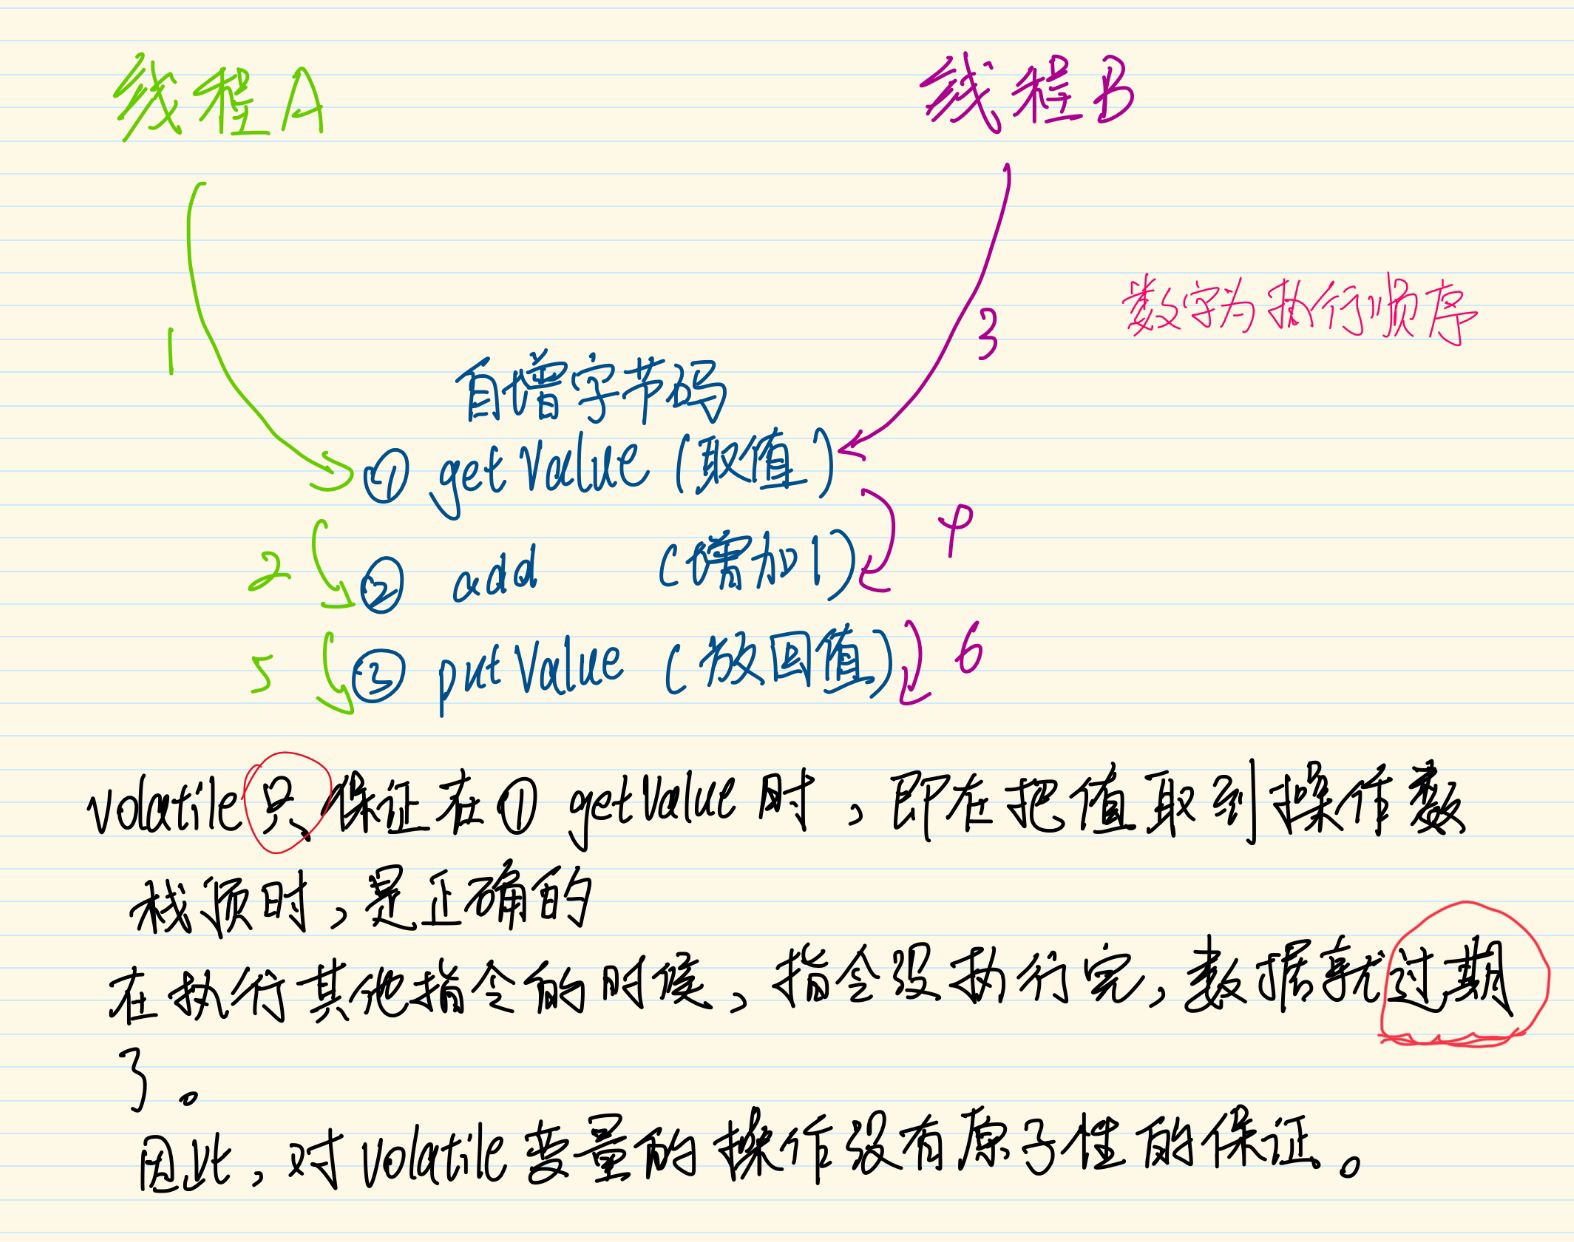 线程A
线程B
1
3
数字为执行顺序
自增字节码
① getValue (取值)
2
② add (增加1)
4
5
③ putValue (放回值)
6
volatile只保证在① getValue时，即在把值取到操作数
栈顶时，是正确的
在执行其他指令的时候，指令没执行完，数据就过期
了。
因此，对volatile变量的操作没有原子性的保证。